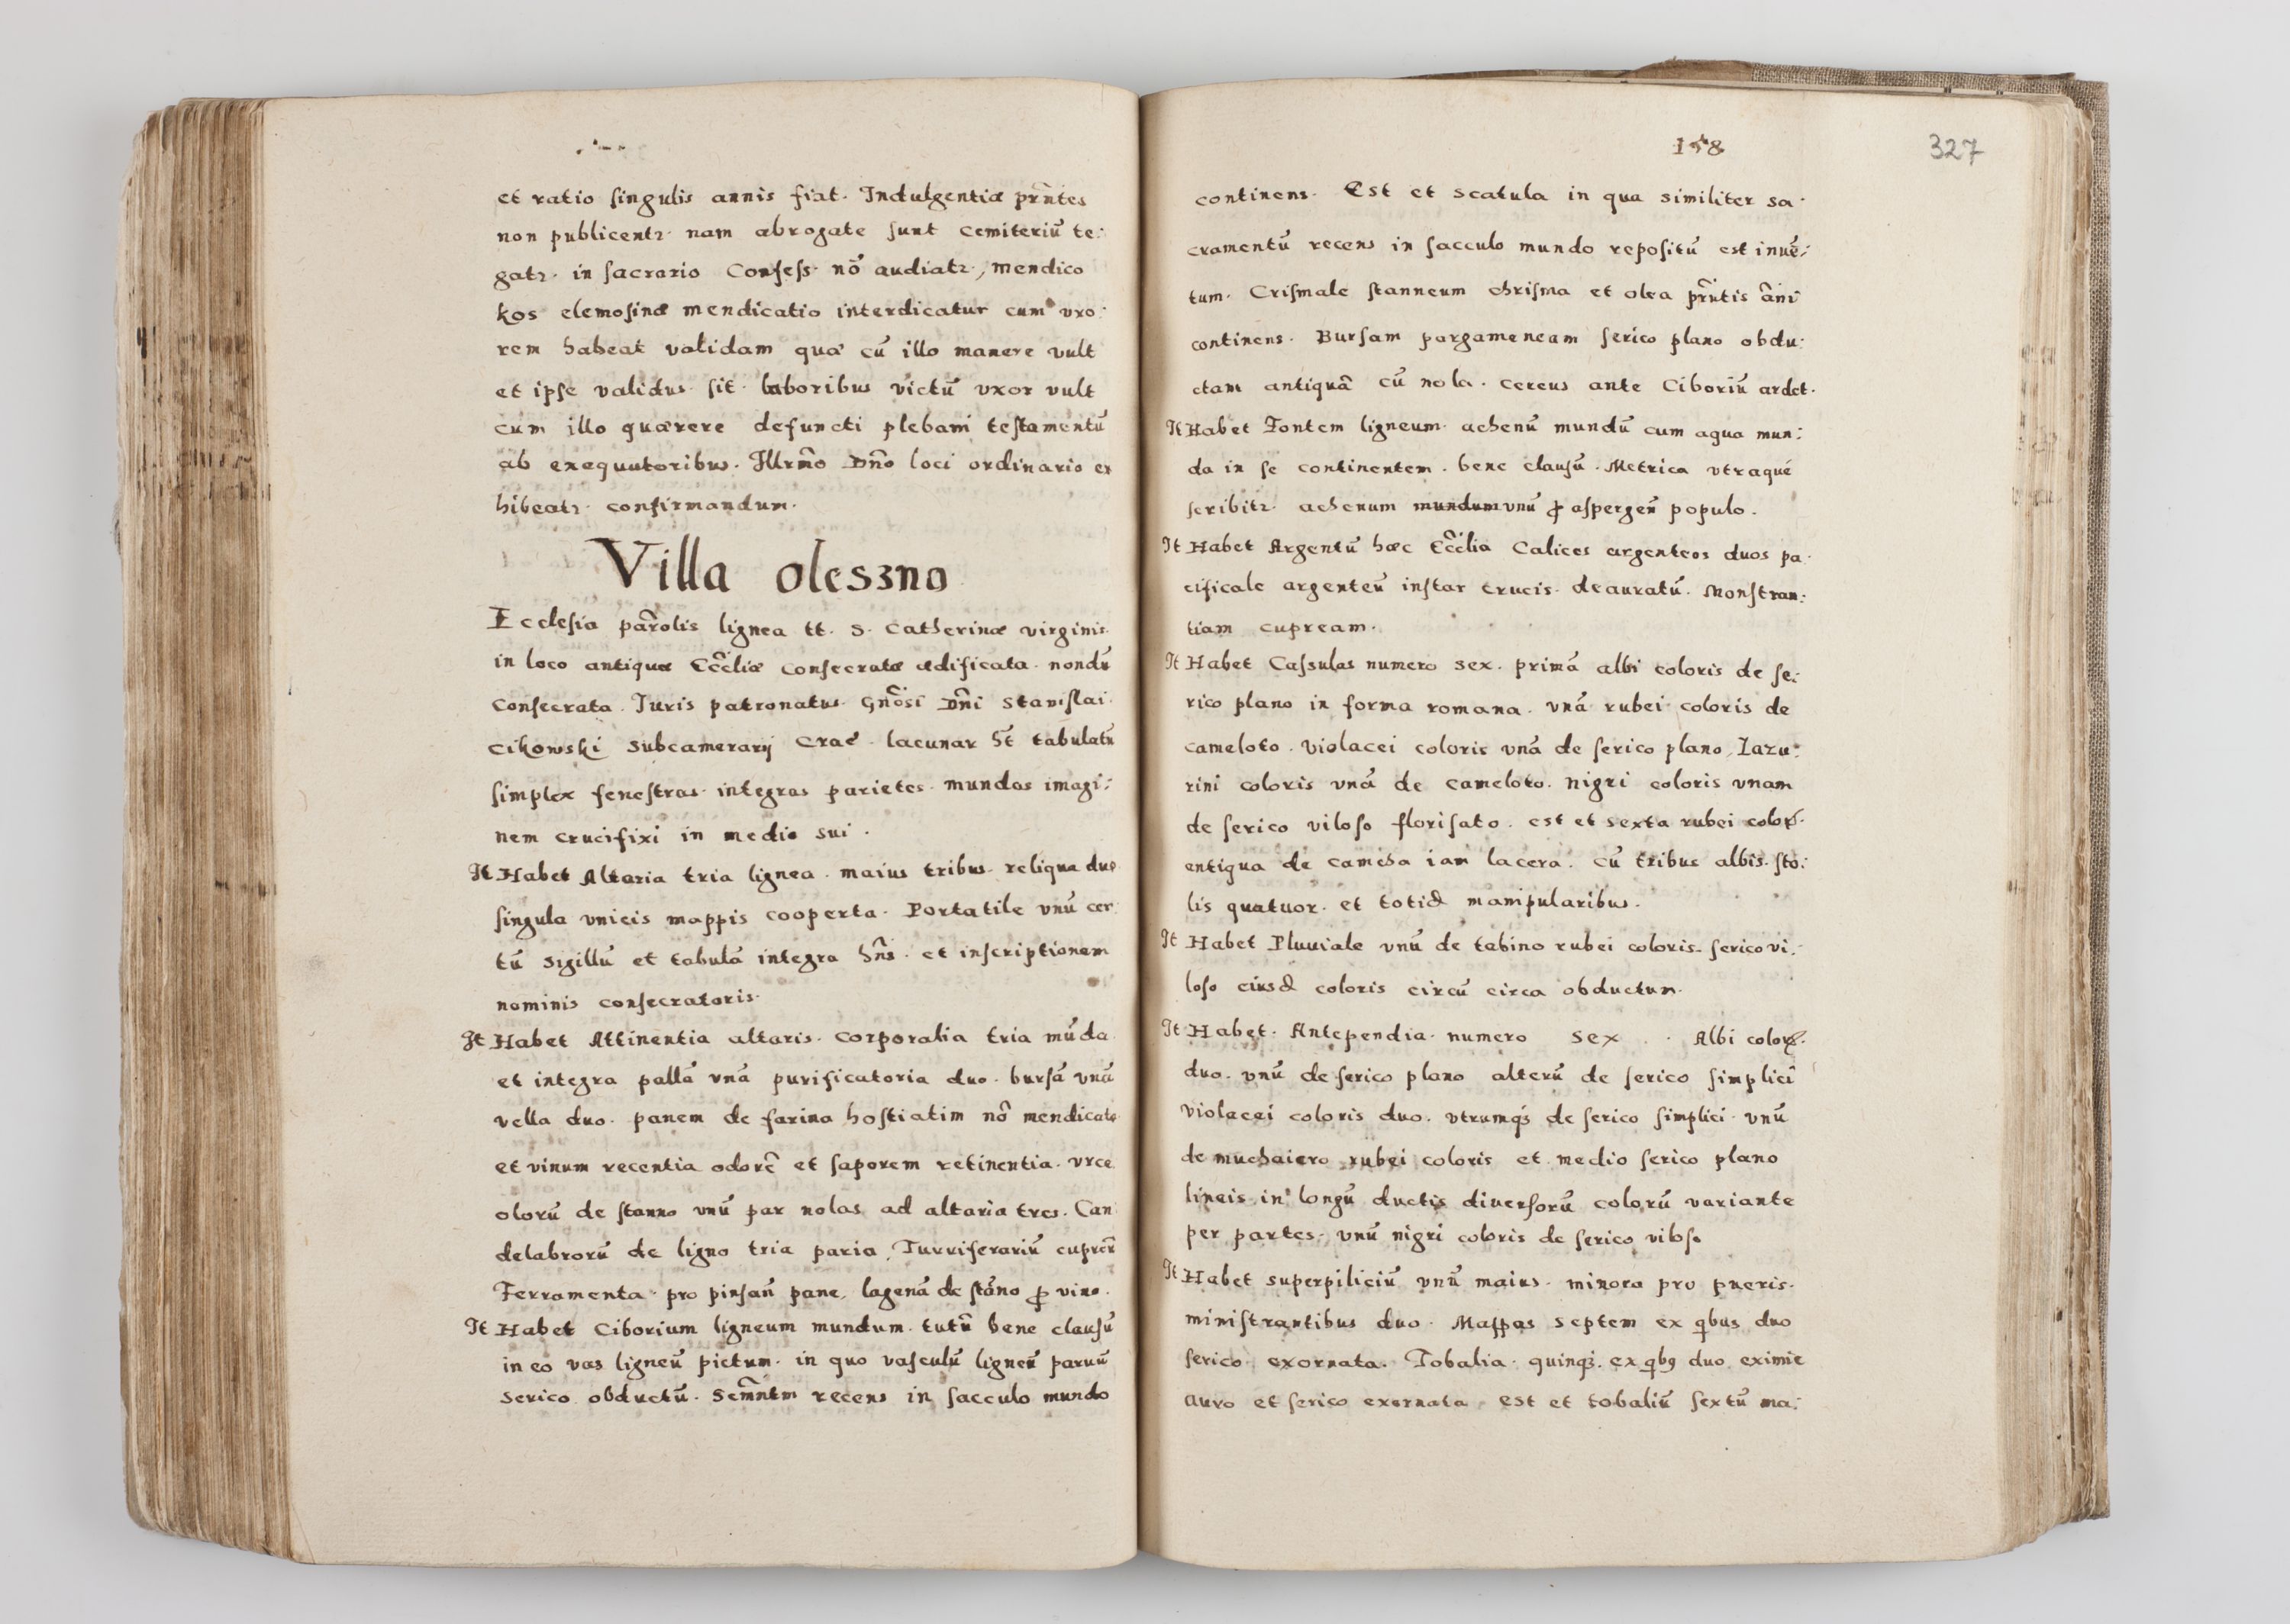 et ratio singulis annis fiat. Indulgentiæ pr̃ntes
non publicentr. nam abrogate sunt cemiteriũ te:
gatr. in sacrario Confess. nõ audiatr, mendico
kos elemosinæ mendicatio interdicatur cum vxo:
rem habeat validam quæ cũ illo manere vult
et ipse validus sit. laboribus victũ vxor vult
cum illo quærere defuncti plebani testamentũ
ab exequutoribus. Illrm̃o Dn̄o loci ordinario ex
hibeatr. confirmandum.
Villa oleszno
Ecclesia par̃olis lignea tt. S. Catherinæ virginis.
in loco antiquæ Ec̃cliæ consecratæ ædificata. nondũ
Consecrata. Juris patronatus. Gñosi Dñi Stanislai
cikowski Subcamerarij Crac. lacunar h̃t tabulatũ
simplex fenestras integras parietes mundas imagi:
nem crucifixi in medio sui.
It Habet Altaria tria lignea. maius tribus. reliqua duo
singula vnicis mappis cooperta. Portatile vnũ cer
tũ sigillũ et tabulã integra hñs. et inscriptionem
nominis consecratoris.
It Habet Attinentia altaris. Corporalia tria mũda
et integra pallã vnã purificatoria duo. bursã vnã
vella duo. panem de farina hostiatim nõ mendicato
et vinum recentia odorẽ et saporem retinentia. vrce
olorũ de stanno vnũ par nolas ad altaria tres. Can
delabrorũ de ligno tria paria, Turriferariũ cupreũ
Ferramenta pro pinsañ pane, lagenã de stãno ꝓ vino.
It Habet Ciborium ligneum mundum. tutũ bene clausũ
in eo vas ligneũ pictum. in quo vasculũ ligneũ paruũ
serico obductũ. Scm̃ntm recens in sacculo mundo
158
327
continens. Est et scatula in qua similiter sa
cramentũ recens in sacculo mundo repositũ est inuẽ:
tum. Crismale stanneum chrisma et olea pr̃ntis ãni
continens. Bursam pargameneam serico plano obdu:
ctam antiquã cũ nola. cereus ante Ciboriũ ardet.
It Habet Fontem ligneum. achenũ mundũ cum aqua mun:
da in se continentem. bene clausũ. Metrica vtraque
scribitr. achenum mundum vnũ ꝓ aspergeñ populo.
It Habet Argentũ hæc Ec̃clia Calices argenteos duos pa
cificale argenteũ instar crucis. deauratũ. Monstran:
tiam cupream.
It Habet Casulas numero sex. primã albi coloris de se:
rico plano in forma romana. vnã rubei coloris de
cameloto. violacei coloris vnã de serico plano, Lazu:
rini coloris vnã de cameloto. nigri coloris vnam
de serico viloso florisato. est et sexta rubei colorꝭ.
entiqua de camcha iam lacera. cũ tribus albis. sto:
lis quatuor. et totid manipularibus.
It Habet Pluuiale vnũ de tabino rubei coloris. serico vi:
loso eiusd coloris circũ circa obductum.
It Habet. Antependia. numero sex . . Albi colorꝭ.
duo. vnũ de serico plano alterũ de serico simplici
violacei coloris duo. vtrumqȝ de serico simplici. vnũ
de muchaiero rubei coloris et medio serico plano
lineis in longũ ductis diuersorũ colorũ variante
per partes. vnũ nigri coloris de serico viloso
It Habet superpiliciũ vnũ maius. minora pro pueris.
ministrantibus duo. Mappas septem ex qbus duo
serico exornata. Tobalia. quinqȝ. ex qbꝰ duo eximie
auro et serico exornata. est et tobaliũ sextũ ma: